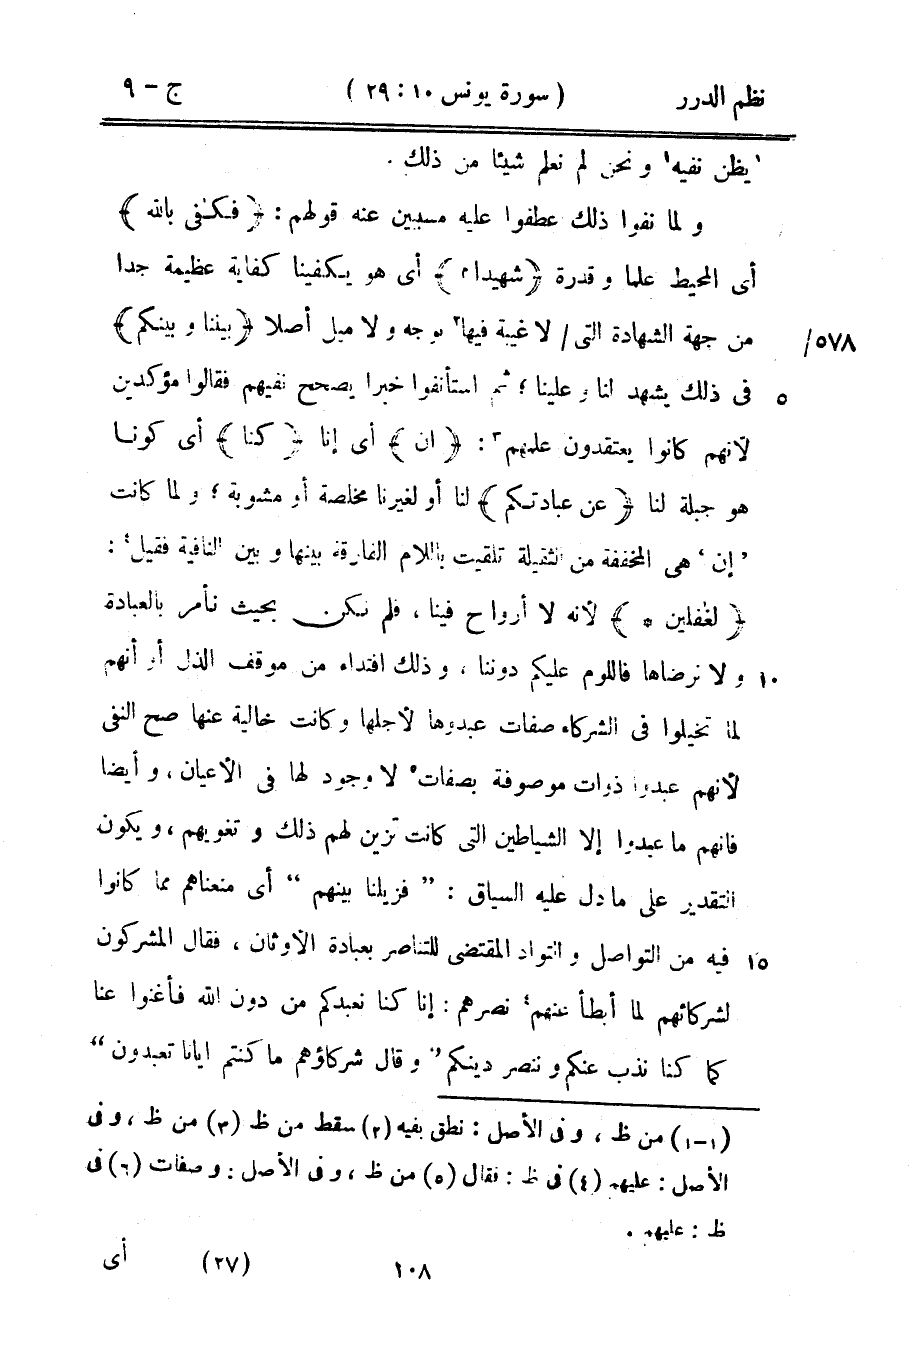 نظم الدرر ( سورة يونس ١٠ : ٢٩ ) ج - ٩
'يظن نفيه' و نحن لم نعلم شيئا من ذلك .
و لما نفوا ذلك عطفوا عليه مسببين عنه قولهم : ﴿ فكفى بالله ﴾
أى المحيط علما و قدرة ﴿ شهيدا٢ ﴾ أى هو يكفينا كفاية عظيمة جدا
من جهة الشهادة التى / لا غيبة فيها٢ بوجه و لا ميل أصلا ﴿ بيننا و بينكم ﴾ ٥٧٨/
٥ فى ذلك يشهد لنا و علينا ؛ ثم استأنفوا خبرا يصحح نفيهم فقالوا مؤكدين
لأنهم كانوا يعتقدون علمهم٣ : ﴿ ان ﴾ أى إنا ﴿ كنا ﴾ أى كونا
هو جبلة لنا ﴿ عن عبادتكم ﴾ لنا أو لغيرنا مخلصة أو مشوبة ؛ و لما كانت
' إن ' هى المخففة من الثقيلة تلقيت باللام الفارقة بينها و بين النافية فقيل٤ :
﴿ لغٰفلين * ﴾ لأنه لا أرواح فينا ، فلم نكن بحيث نأمر بالعبادة
١٠ و لا نرضاها فاللوم عليكم دوننا ، و ذلك افتداء من موقف الذل أو أنهم
لما تخيلوا فى الشركاء صفات عبدوها لأجلها و كانت خالية عنها صح النفى
لأنهم عبدوا ذوات موصوفة بصفات٥ لا وجود لها فى الأعيان ، و أيضا
فانهم ما عبدوا إلا الشياطين التى كانت تزين لهم ذلك و تغويهم ، و يكون
التقدير على ما دل عليه السياق : " فزيلنا بينهم " أى منعناهم مما كانوا
١٥ فيه من التواصل و التواد المقتضى للتناصر بعبادة الأوثان ، فقال المشركون
لشركائهم لما أبطأ عنهم٦ نصرهم : إنا كنا نعبدكم من دون الله فأغنوا عنا
كما كنا نذب عنكم و ننصر دينكم " و قال شركاؤهم ما كنتم ايانا تعبدون "
(١-١) من ظ ، و فى الأصل : نطق بفيه (٢) سقط من ظ (٣) من ظ ، و فى
الأصل : عليهم (٤) فى ظ : فقال (٥) من ظ ، و فى الأصل : و صفات (٦) فى
ظ : عليهم .
١٠٨ (٢٧) أى